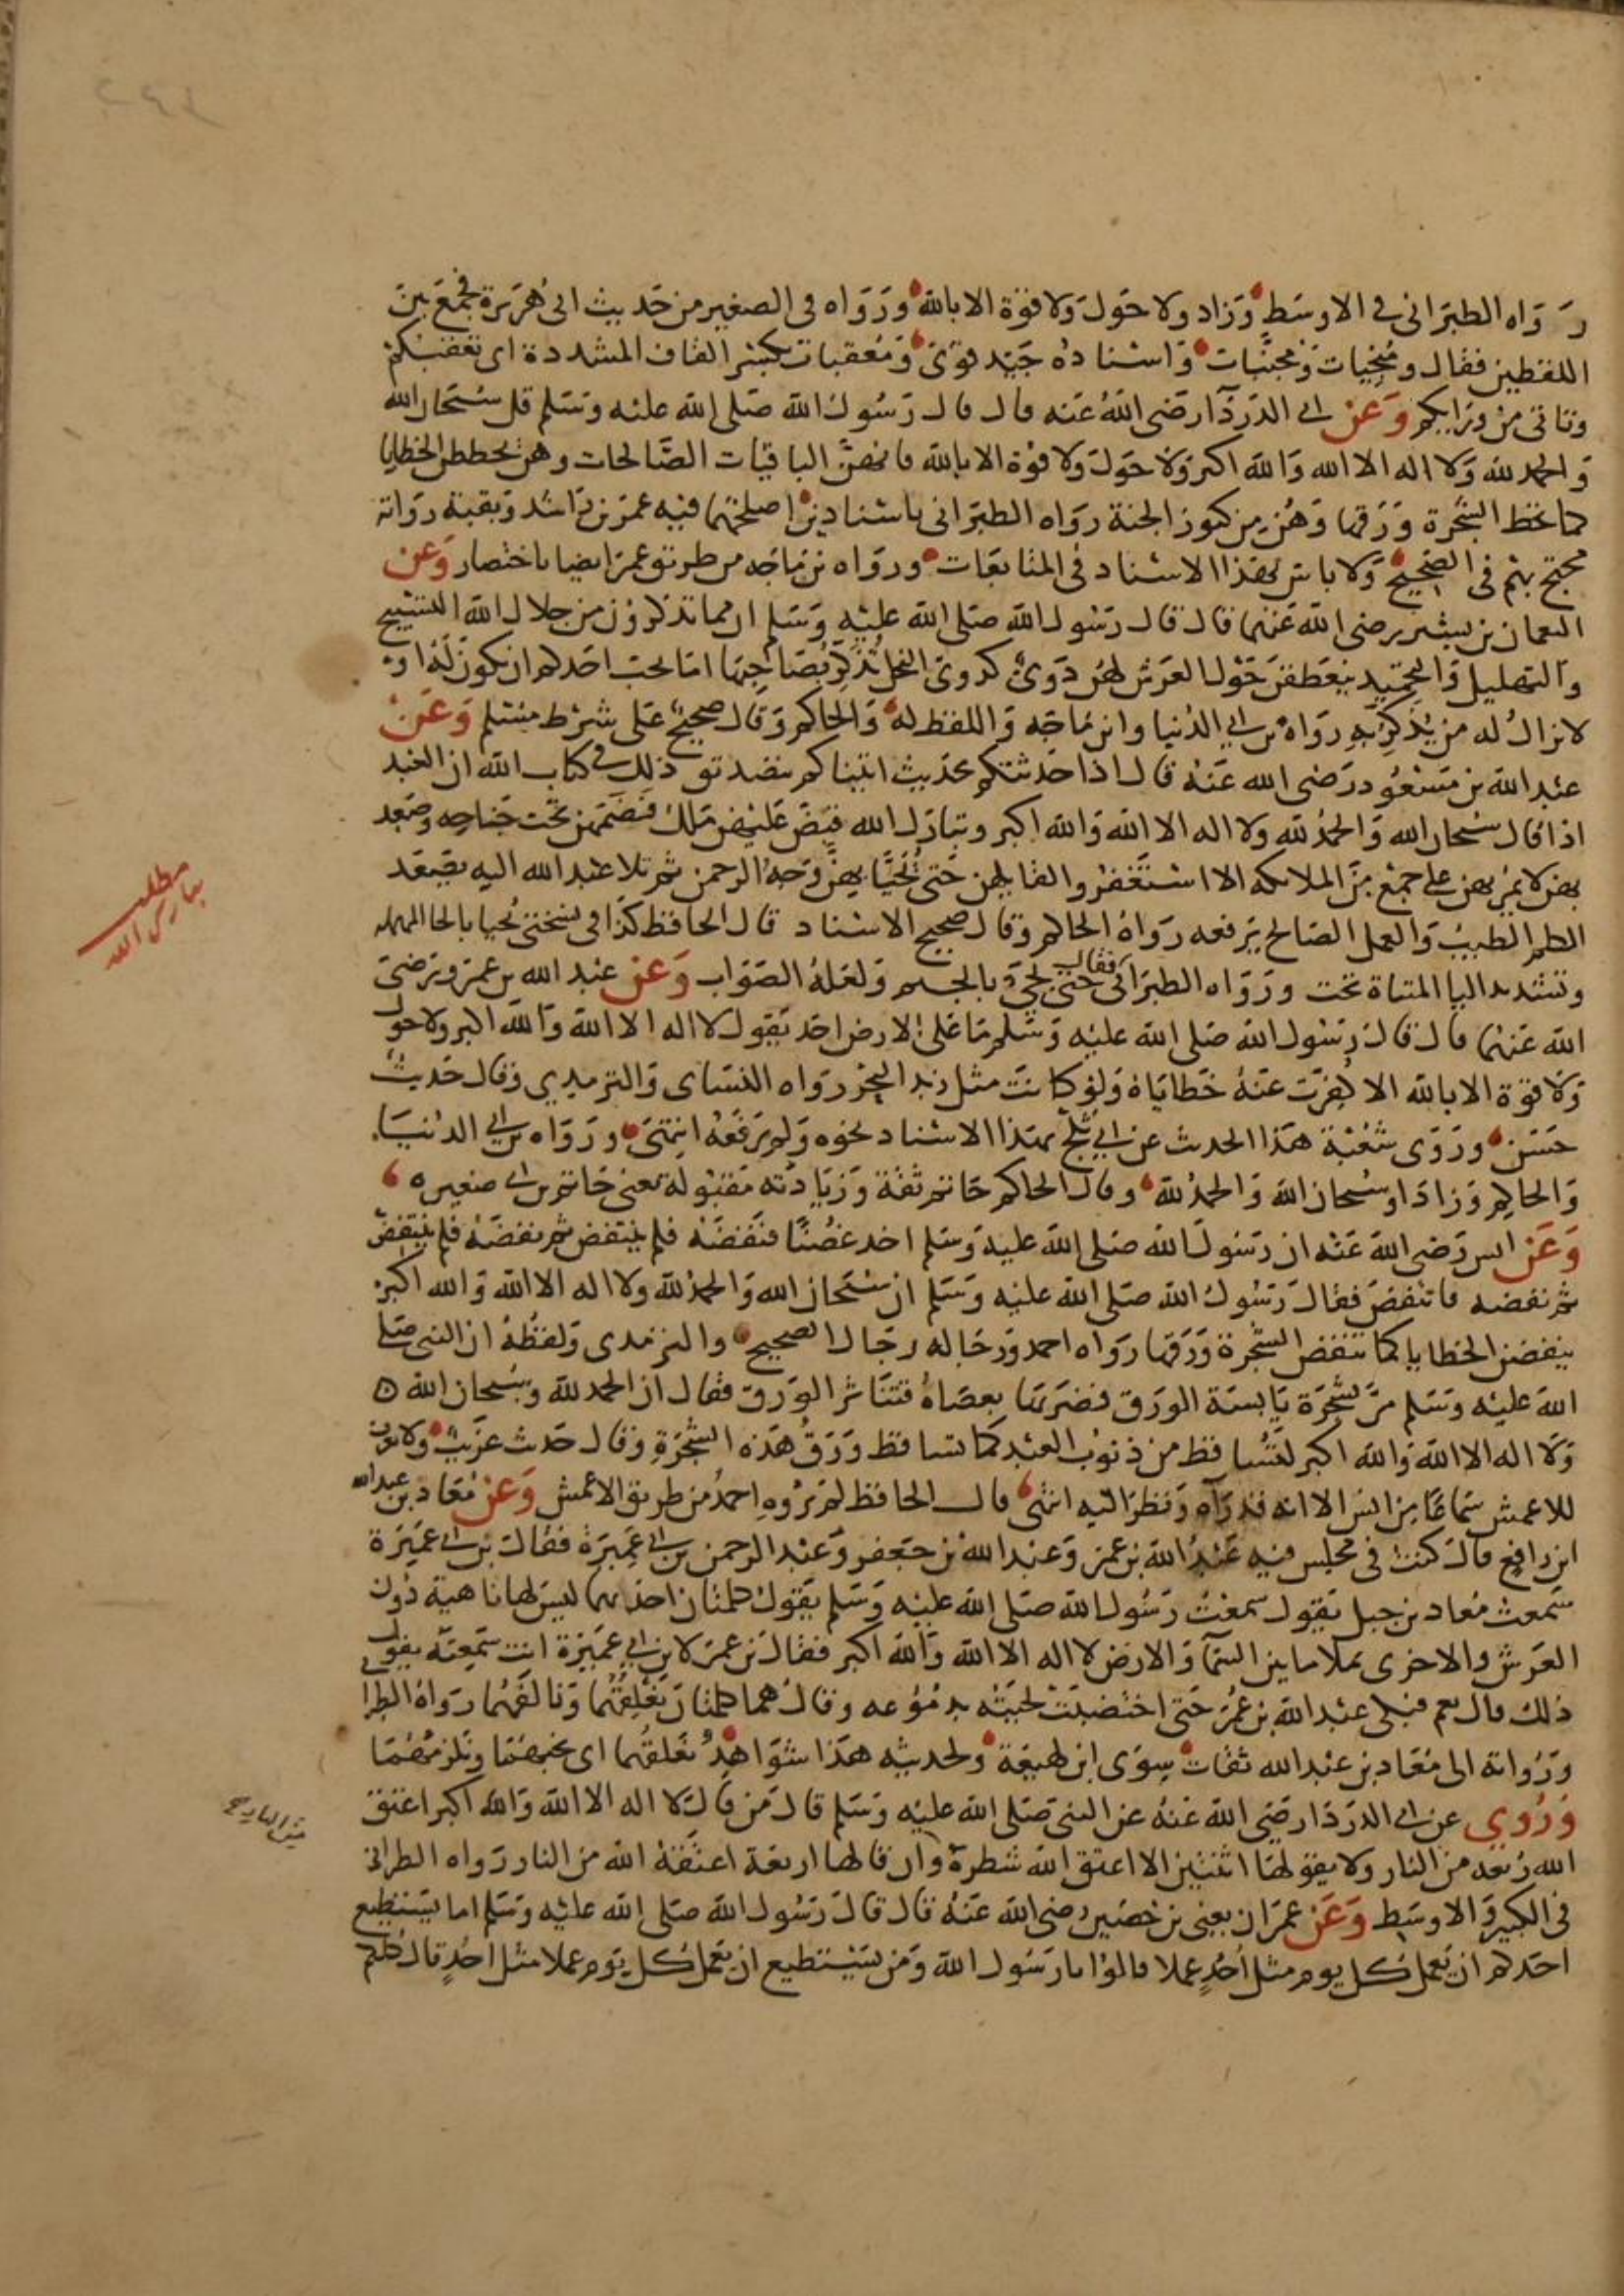 رَوَاه الطبَرانى فى الاوسَطِ وَزاد ولا حَولَ وَلا قوة الا بالله وَرَوَاه فى الصغير من حَديث ابى هُرَيرة فجمَعَ بينَ
اللفظين فقال ومُنجِيات وَمجنّبات وَاسْناده جَيّد قوىّ وَمُعقبات بكسْر القاف المشددة اى تعقبكم
وتاتى من وَرَايكم وَعَن ابى الدَردَآ رَضى اللهُ عَنه قال قال رَسُول الله صَلى الله عليْه وَسَلم قل سُبْحان الله
وَالحمد لله وَلا اله الا الله وَالله اكبر وَلا حَولَ وَلا قوة الا بالله فانهنّ الباقيات الصَّالحات وهنّ يحططن الخطايا
كما تحط الشجَرة وَرَقها وَهُنّ من كنوز الجنة رَوَاه الطبَرانى باسْنادين اصلحهما فيه عمَر بن رَاشد وَبقية روَاته
محتج بهم فى الصَّحيح وَلا باس بهَذا الاسْناد فى المتابَعات ورَوَاه بن مَاجَه من طريق عمَر ايضا باختصار وَعن
النعمان بن بشير رضى الله عَنهما قال قال رَسُول الله صَلى الله عليْه وَسَلم ان مما تذكرون من جلال الله التسْبيح
وَالتهليل وَالتحميد ينعَطفنَ حَوْل العَرش لهُنّ دَوىّ كدوىّ النحل تُذكِّر بصَاحِبها امَا يحب احَدكم ان يكون لَهُ اوْ
لا يزال له من يُذكِّر بهِ رَوَاهُ بن ابى الدُنيا وابن مَاجَه وَاللفظ له وَالحاكم وَقال صَحيح عَلى شَرْط مسْلم وَعَنْ
عبْد الله بن مَسْعُود رَضى الله عَنهُ قال اذا حَدثتكم بحَديث اتيناكم بتصْديق ذلك فى كتاب الله ان العَبد
اذا قال سُبْحان الله وَالحمْدُ لله ولا اله الا الله وَالله اكبر وتبارك الله قبَضَ عليْهن ملك فضَمّهن تحْت جَناحِه وصَعِد
بهن لا يمُرّ بهن على جمْع مِنَ الملائكه الا اسْتَغفرُوا لقائلهن حَتى يُحَيَّا بهِنّ وَجهُ الرحمن ثم تلا عبْد الله اليه يصْعَد
الكلم الطيبُ وَالعمل الصَالح يَرفعه رَوَاهُ الحاكم وَقال صحيح الاسْناد قال الحافظ كذا فى نسْختى يُحيا بالحا المهملة
وتشديد اليا المثناة تحت ورَوَاه الطبَرانى فقال حتى يجىَ بالجيم وَلعَلهُ الصَوَاب وَعَن عبْد الله بن عمرَو رَضىَ
الله عَنهُما قالَ قالَ رَسُول الله صَلى الله عليْه وَسَلم مَا عَلى الارض احَد يَقول لا اله الا الله وَالله اكبر ولا حَول
وَلا قوة الا بالله الا كُفِرَت عَنهُ خطايَاهُ وَلو كانَت مثل زبد البَحْر رَوَاه النسَاى وَالترمدي وَقال حَديث
حَسَن ورَوَى شعْبَة هَذا الحديث عن ابى بَلج بهَذا الاسْناد نحوه وَلم يَرفَعْهُ انتهَى ورَوَاه بن ابى الدنيَا
وَالحاكِم وَزادَا وسُبْحان الله وَالحمْدُ لله وقال الحاكم حَاتم ثقة وَزيَادته مَقبُولة يَعنى حَاتم بن ابى صَغيره
وَعَن انس رَضى الله عَنْه ان رَسُول الله صَلى الله عليه وَسَلم اخد غصْنًا فنَفضَه فلم ينتفض ثم نفضَه فلم ينتفض
ثم نفضه فانتفضَ فقال رَسُول الله صَلى الله عليْه وَسَلم ان سُبْحان الله وَالحمْدُ لله ولا اله الا الله وَالله اكبر
ينفضن الخطايا كما تنفض الشجَرة وَرَقها رَوَاه احمد وَرجَاله رجَال الصَحيح والترمدى وَلفظهُ ان النبى صَلى
الله عليْه وَسَلم مَرّ بشجَرة يَابسَة الورَق فضَرَبَها بعصَاهُ فتنَاثر الوَرَق فقال ان الحمد لله وسُبْحان الله
وَلا اله الا الله وَالله اكبر لتُسَاقط من ذنوُب العَبْد كما تساقط وَرَقُ هَذه الشجَرةِ وَقال حَديث غرَيبْ ولا نعرف
للاعمش سَمَاعًا من انس الا انه قد رَآه وَنظرَ اليْه انتهى قال الحافظ لم يَرْوهِ احمدُ من طريق الاعمش وَعَنْ مُعَاد بن عبد الله
ابن رَافع قال كنتُ فى مجلس فيه عَبْدُ الله بن عمرَ وَعبْد الله بن جَعفر وَعبْد الرحمن بن ابى عَميرَة فقالَ بن ابى عَميرَة
سَمعتُ مُعاد بن جبل يَقول سَمعْتُ رَسُول الله صَلى الله عليْه وَسَلم يَقول كلمتان احداهما ليسَ لها ناهية دُون
العَرش والاخرى تملا ما بين السَمآ وَالارض لا اله الا الله وَالله اكبر فقالَ بن عمرَ لابن ابى عَميرَة انت سَمعتَه يقول
ذلك قال نعم فبكى عبْد الله بن عُمرَ حَتى اختضبَتْ لحيَتُه بدمُوعه وقال هما كلمتان نَعْلقُهُما وَنالَفهُما رَوَاهُ الطبرانى
وَرُواته الى مُعَاد بن عَبْد الله ثقات سِوَى ابن لهيعَة وَلحديثه هَذا شوَاهدُ نَعلقُهُما اى نحبهمَا ونلزمهمَا
وَرُوي عن ابى الدَردَا رَضىَ الله عَنهُ عن النبى صَلى الله عليْه وَسَلم قال مَن قال لَا اله الا الله وَالله اكبر اعتق
الله رُبعه من النار ولا يقولها اثنتين الا اعتق الله شطرهُ وان قالها اربَعة اعتَقهُ الله من النار رَوَاه الطبرانى
فى الكبير وَالاوسَط وَعَن عمرَان يعنى بن حُصَين رضى الله عَنهُ قال قالَ رَسُول الله صَلى الله عليْه وَسَلم اما يَسْتطيع
احَدكم ان يعمل كُل يوم مثل اُحُدٍ عملا قالوا يا رَسُول الله وَمَن يَسْتطيع ان يَعمل كُل يَوم عملا مثل احُدٍ قال كلكم
مطلب